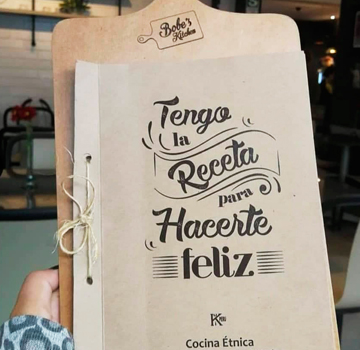 Bobe's
Kitchen
Tengo
la
Receta
para
Hacerte
feliz
Cocina Étnica